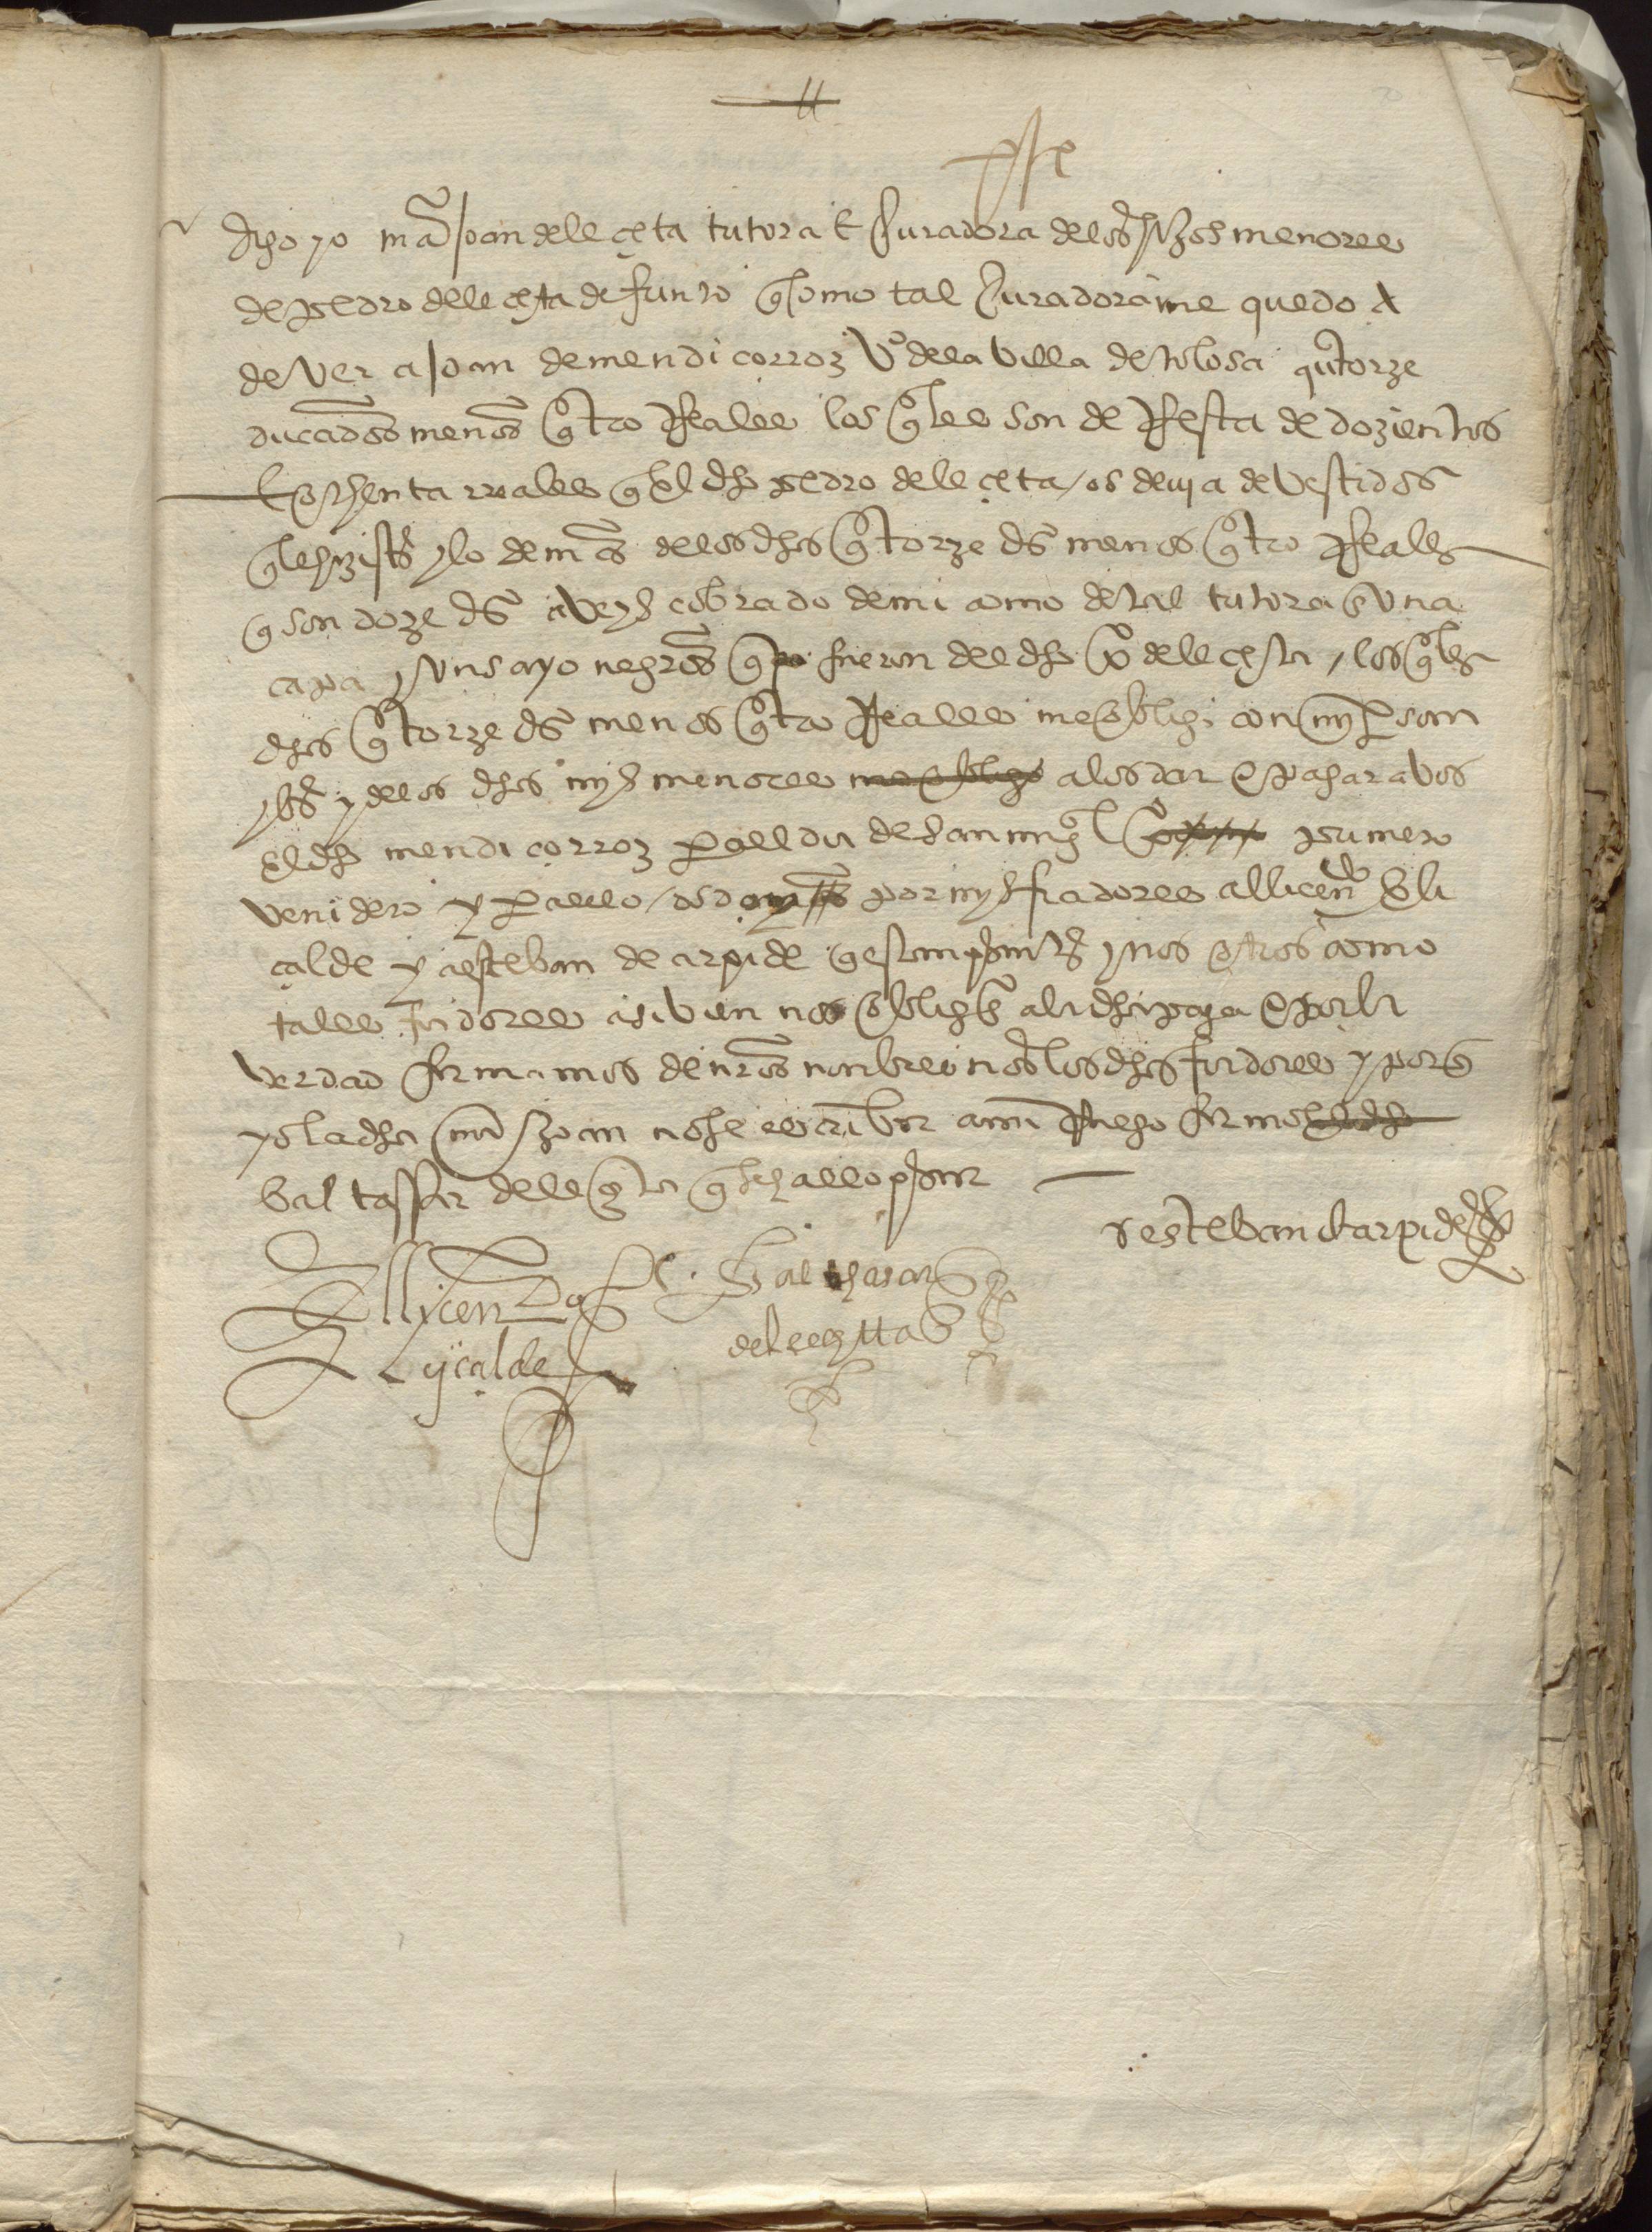 digo yo mā joan de leçeta tutora e curadora de los hijos menores
de pedro de leçeta defunto q̄ como tal curadora me quedo a
dever a joan de mendiçorroz vº de la villa de tolosa quatorze
ducados menos qtro Reales los qles son de Resta de dozientos
e ochenta rreales q el dho pedro de leçeta os devia de vestidos
q le hizistes y lo demas de los dhos qtorze ds menos qtro Reales
q son doze ds aveys cobrado de mi como de tal tutora en una
capa y un sayo negros q fueron del dho pº de leçeta, los qles
dhos qtorze ds menos qtro Reales me obligo con mi persona
y bs y de los dhos mys menores me obligo a los dar e pagar a vos
el dho mendiçorroz para el dia de san migl primero
venidero y para ello os doy por mys fiadores al licendo
calde y a esteban de arpide q estan psentes y nos otros como
tales fiadores asi bien nos obligamos a la dha paga e por la
verdad firmamos de nros nonbres nos los dhos fiadores y por q
yo la dha mā joan no se escribir a mi Ruego firmo el dho
baltassar de leçeta q se hallo psente
esteban de arpide
El licendo
Lyçalde
Balthasar
de leeçetta